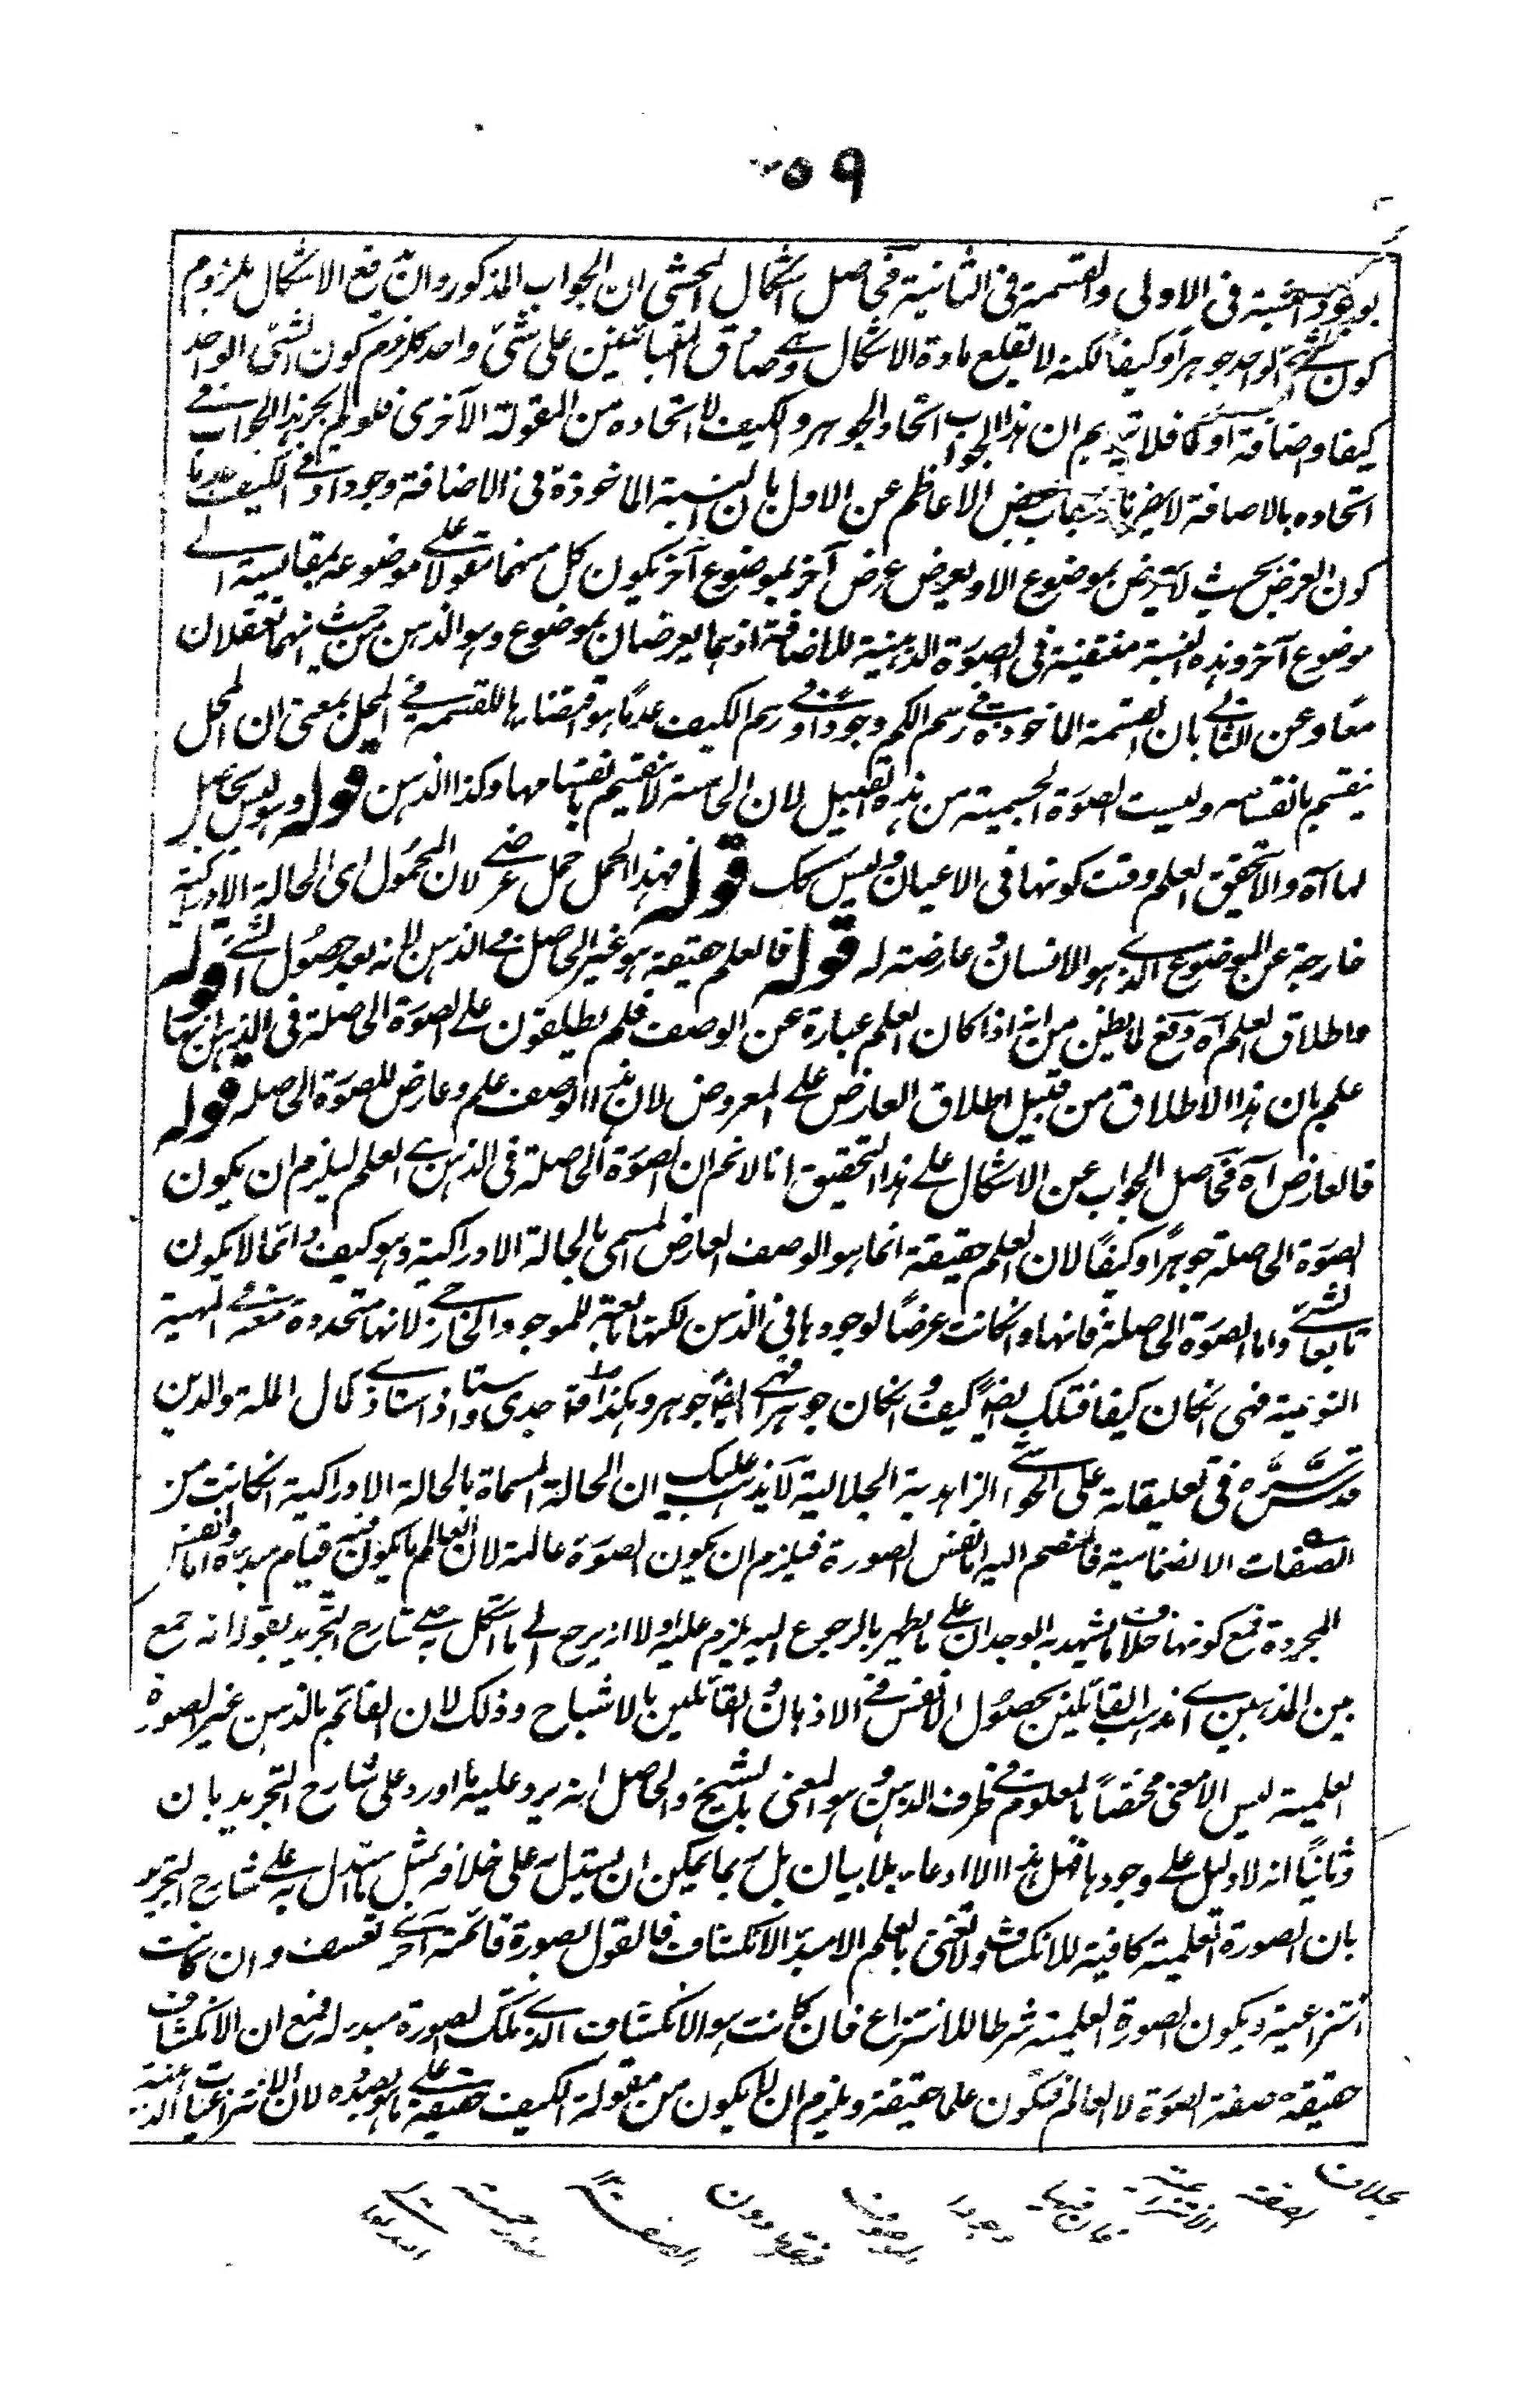 ٥٩
بوجود النسبة فى الاولى والقسمة فى الثانية فحاصل اشكال المحشى ان الجواب المذكور وان رفع الاشكال بلزوم
كون الشئ الواحد جوهرا وكيفا لكنه لا يقلع مادة الاشكال وهى صدق المتباينين على شئ واحد كلزوم كون الشئ الواحد
كيفا واضافة او كما فلا ان هذا الجواب اتحاد الجوهر والكيف لا اتحاده من المقولة الاخرى فلو لم يجر هذا الجواب فى
اتحاده بالاضافة لا يضرنا بعض الاعاظم عن الاول بان النسبة الماخوذة فى الاضافة وجودا وفى الكيف عدما
كون العرض بحيث لا يعرض بموضوع الا ويعرض عرض آخر لموضوع آخر يكون كل منهما مقولا على موضوعه بمقايسة الى
موضوع آخر وهذه النسبة منتفية فى الصورة الذهنية للاضافة اذ هما يعرضان بموضوع وهو الذهن من حيث انهما تعقلان
معا وعن الثانى بان القسمة الماخوذة فى رسم الكم وجودا وفى رسم الكيف عدما هو اقتضاءها للقسمة فى المحل بمعنى ان المحل
ينقسم بانقسامه وليست الصورة الجسمية من هذه القبيل لان الحاسة لا تنقسم بانقسامها وكذا الذهن قوله وهو ليس بحاصل
لها آه والا لتحقق العلم وقت كونها فى الاعيان وليس كك قوله فهذا الحمل حمل عرضى لان المحمول اى الحالة الادراكية
خارجة عن الموضوع الذى هو الانسان وعارضة له قوله فالعلم حقيقة هو غير الحاصل فى الذهن لانه بعد حصول الشئ قوله
واطلاق العلم آه دفع لما يظن من انه اذا كان العلم عبارة عن الوصف فلم يطلقون على الصورة الحاصلة فى الذهن انها
علم بان هذا الاطلاق من قبيل اطلاق العارض على المعروض لان هذا الوصف علم وعارض للصورة الحاصلة قوله
فالعارض آه فحاصل الجواب عن الاشكال على هذا التحقيق انا لا نم ان الصورة الحاصلة فى الذهن هى العلم ليلزم ان يكون
الصورة الحاصلة جوهرا وكيفا لان العلم حقيقة انما هو الوصف العارض المسمى بالحالة الادراكية وهو كيف دائما لا يكون
تابعا لشئ واما الصورة الحاصلة فانها وانكانت عرضا لوجودها فى الذهن لكنها تابعة للموجود الخارجى لانها متحدة معه فى المهية
النوعية فهى انكان كيفا فتلك ايضا كيف وانكان جوهرا فهى ايضا جوهر وهكذا جدى واستاذ استاذى كمال الملة والدين
قدس سره فى تعليقاته على الحواشى الزاهدية الجلالية لا يذهب عليك ان الحالة المسماة بالحالة الادراكية انكانت من
الصفات الانضمامية فالمنضم اليه اما نفس الصورة فيلزم ان يكون الصورة عالمة لان العالم ما يكون فيه قيام مبدءه واما النفس
المجردة فمع كونها خلاف ما يشهد به الوجدان على ما يظهر بالرجوع اليه يلزم عليه اولا انه يرجع الى ما اشكل به على شارح التجريد بقوله انه جمع
بين المذهبين اى مذهب القائلين بحصول الانفس فى الاذهان والقائلين بالاشباح وذلك لان القائم بالذهن غير الصورة
العلمية ليس الا معنى مختصا بالمعلوم فى ظرف الذهن وهو المعنى بالشبح والحاصل انه يرد عليه ما اورد على شارح التجريد بان
وثانيا انه لا دليل على وجودها فهل هذا الا ادعاء بلا بيان بل ربما يمكن ان يستدل على خلافه بمثل ما استدل به على شارح التجريد
بان الصورة العلمية كافية للانكشاف ولا نعنى بالعلم الا مبدء الانكشاف فالقول بصورة قائمة اخرى تعسف وان كانت
انتزاعية ويكون الصورة العلمية شرطا للانتزاع فان كانت هو الانكشاف الذى تلك الصورة مبدء له فمع ان الانكشاف
حقيقة صفة الصورة لا العالم فيكون علما حقيقة ويلزم ان لا يكون من مقولة الكيف حقيقة على ما هو بصدده لان الانتزاعيات